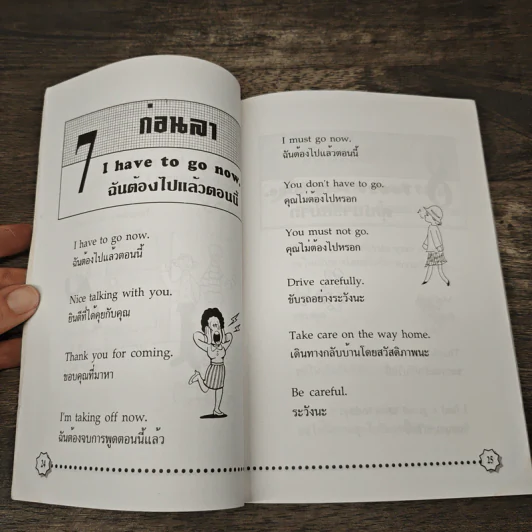 7
ก่อนลา
I have to go now.
ฉันต้องไปแล้วตอนนี้
I have to go now.
ฉันต้องไปแล้วตอนนี้
Nice talking with you.
ยินดีที่ได้คุยกับคุณ
Thank you for coming.
ขอบคุณที่มาหา
I'm taking off now.
ฉันต้องจบการพูดตอนนี้แล้ว
24
I must go now.
ฉันต้องไปแล้วตอนนี้
You don't have to go.
คุณไม่ต้องไปหรอก
You must not go.
คุณไม่ต้องไปหรอก
Drive carefully.
ขับรถอย่างระวังนะ
Take care on the way home.
เดินทางกลับบ้านโดยสวัสดิภาพนะ
Be careful.
ระวังนะ
25